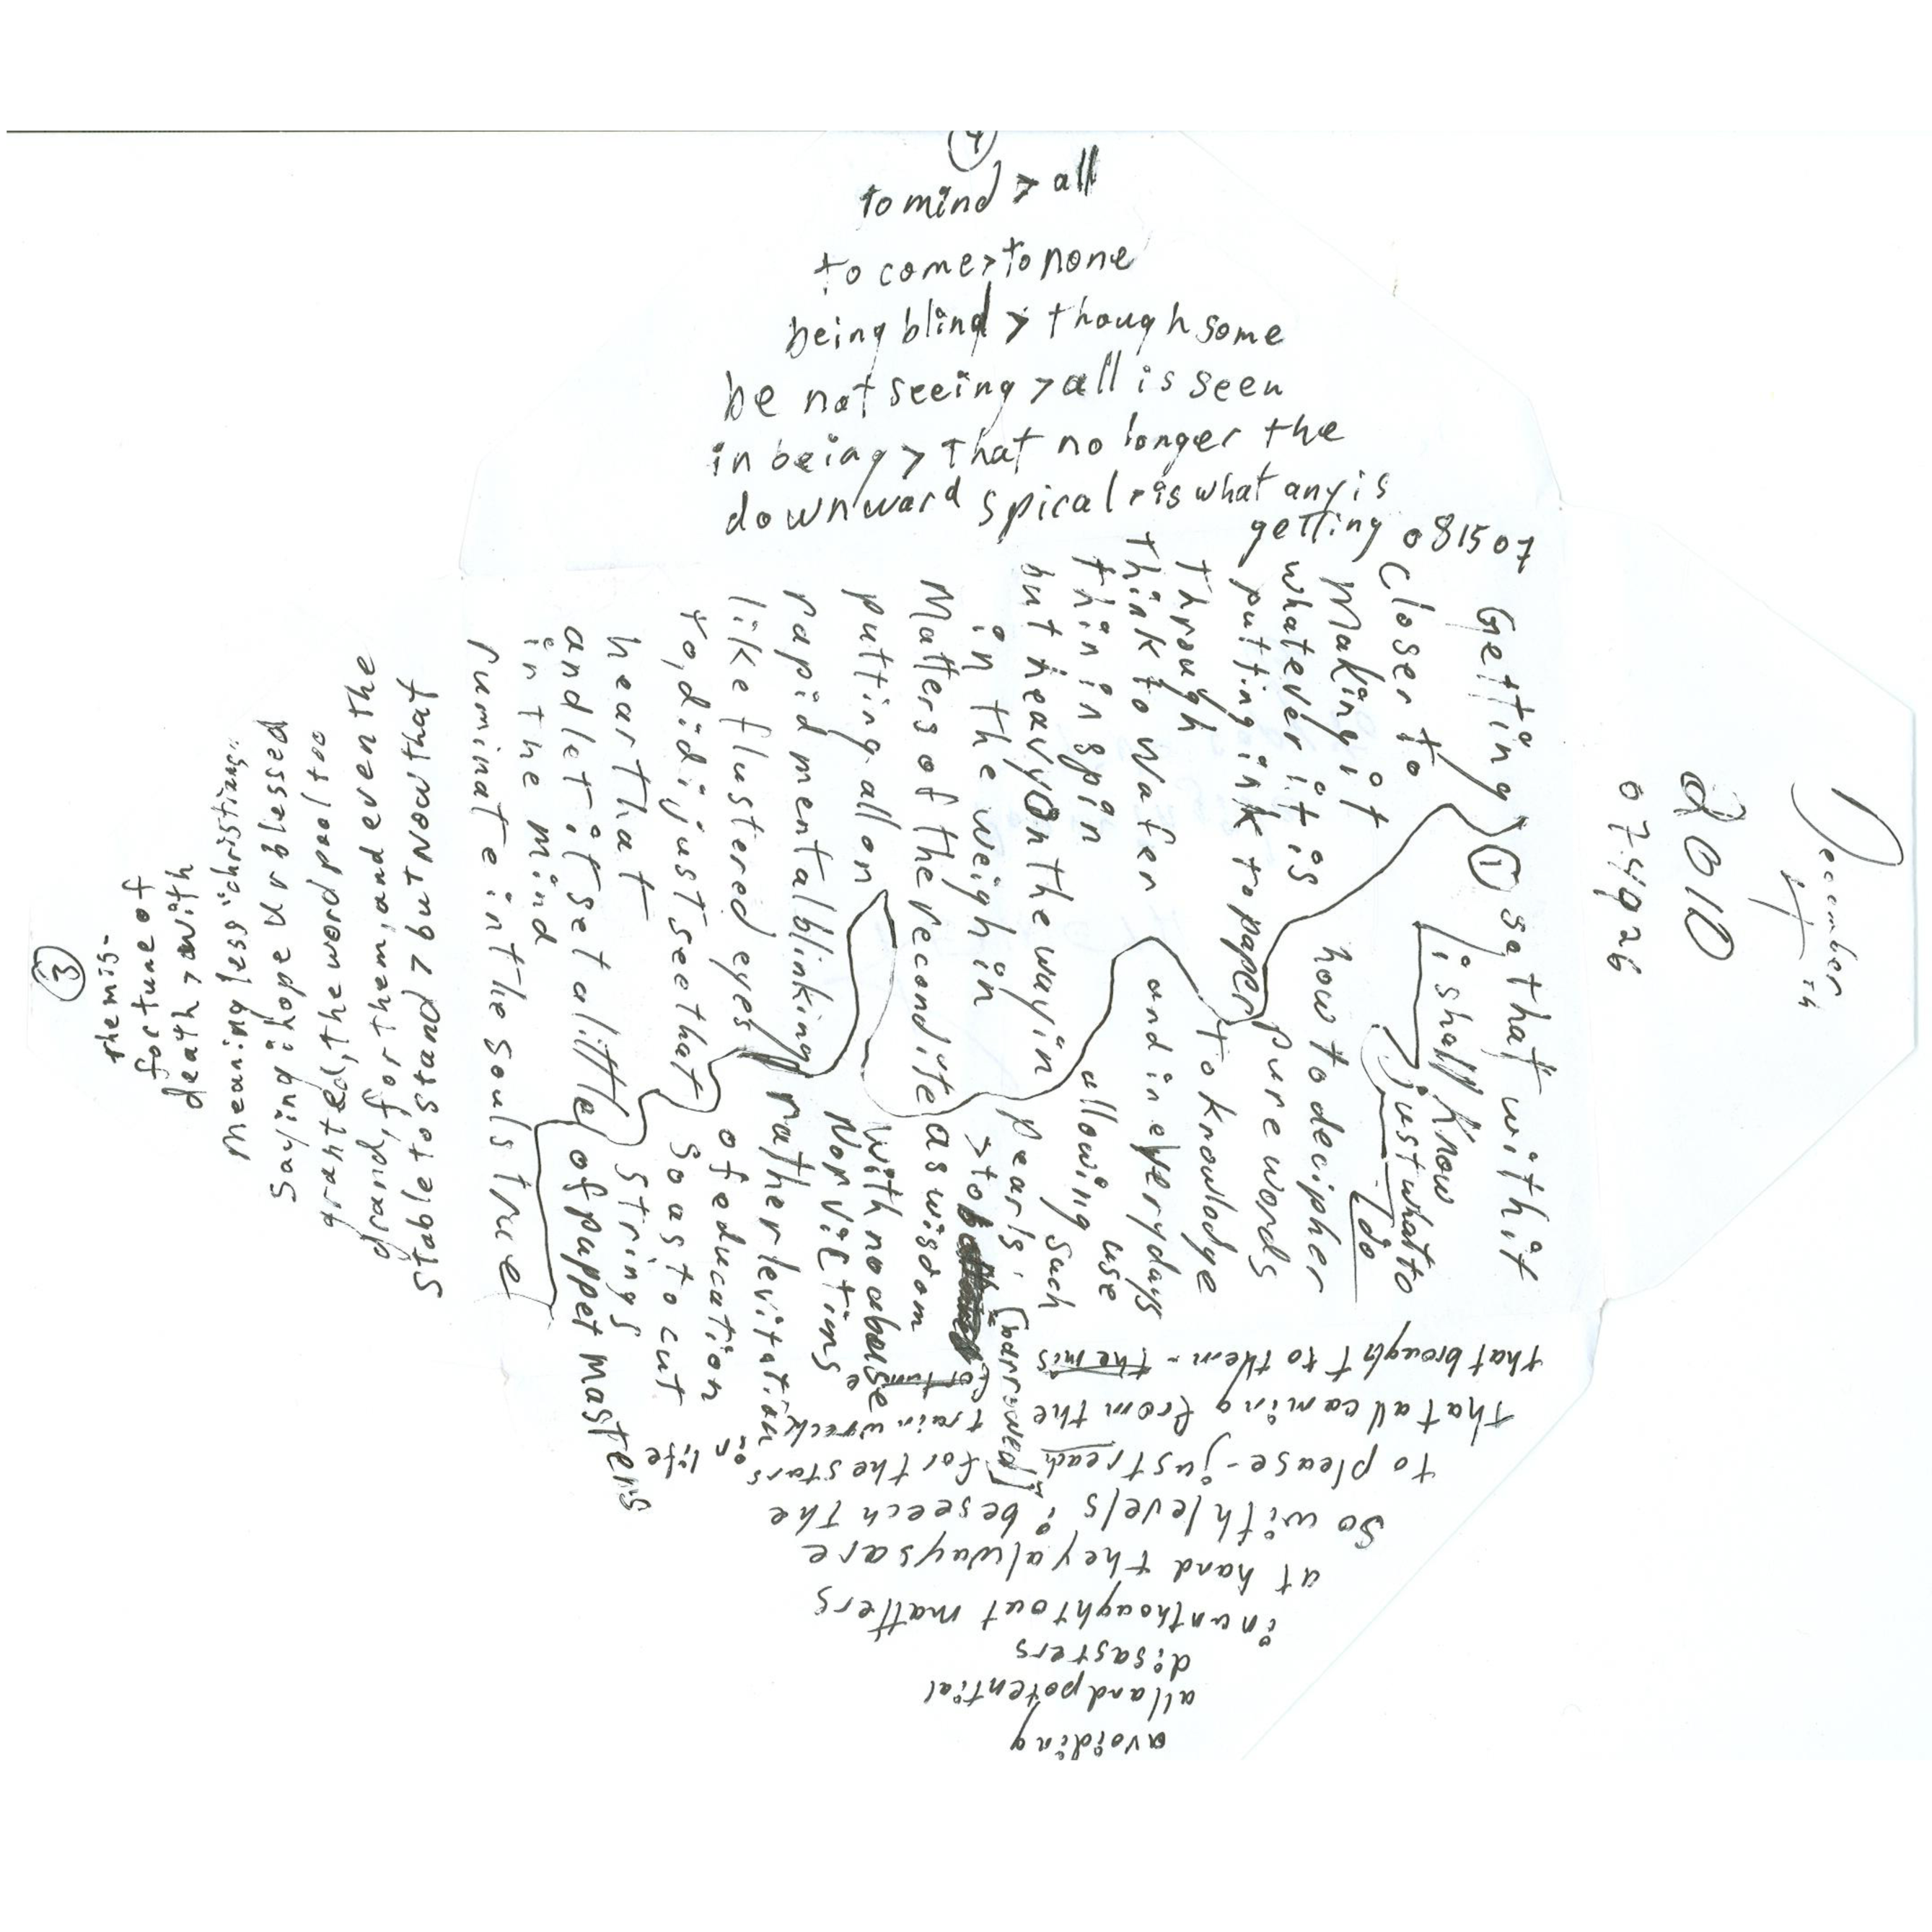 December
4th
2010
074926
Getting > ①
Closer to
Making it
whatever it is
putting ink to paper
Through
think to wafer
thin in spin
but heavy on the way in
in the weigh in
Matters of the recondite
putting all on
rapid mental blinking
like flustered eyes
to, did i just see that
heart hat
and let it set a little
in the mind
ruminate in the souls true
so that with it
i shall know
just what to
do
how to decipher
pure words
to knowledge
and in everydays
use
allowing such
pearls, [narrowed]
> to
as wisdom
with no abuse
Nor victims
rather levitation
of education
So as to cut
strings
of puppet masters
avoiding
all and potential
disasters
in unthought out matters
at hand they always are
So with levels i beseech the
to please - just reach for the stars
that all coming from the train wreck in life
that brought to them - the mis fortune
③
the mis-
fortune of
death > with
Meaningless "christians"
Saying i hope ur blessed
granted, the word pool too
grand, for them, and even the
stable to stand > but now that
④
to mind > all
to come > to none
being blind > though some
be not seeing > all is seen
in being > that no longer the
downward spiral > is what any is
getting 081507